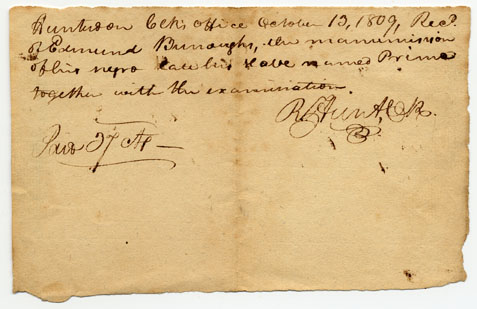 Hunterdon Clks office October 13, 1809, Recd.
of Edmund Burroughs, the manumission
of his negro late his slave named Prime
together with the examination.
Hunt, Clk.